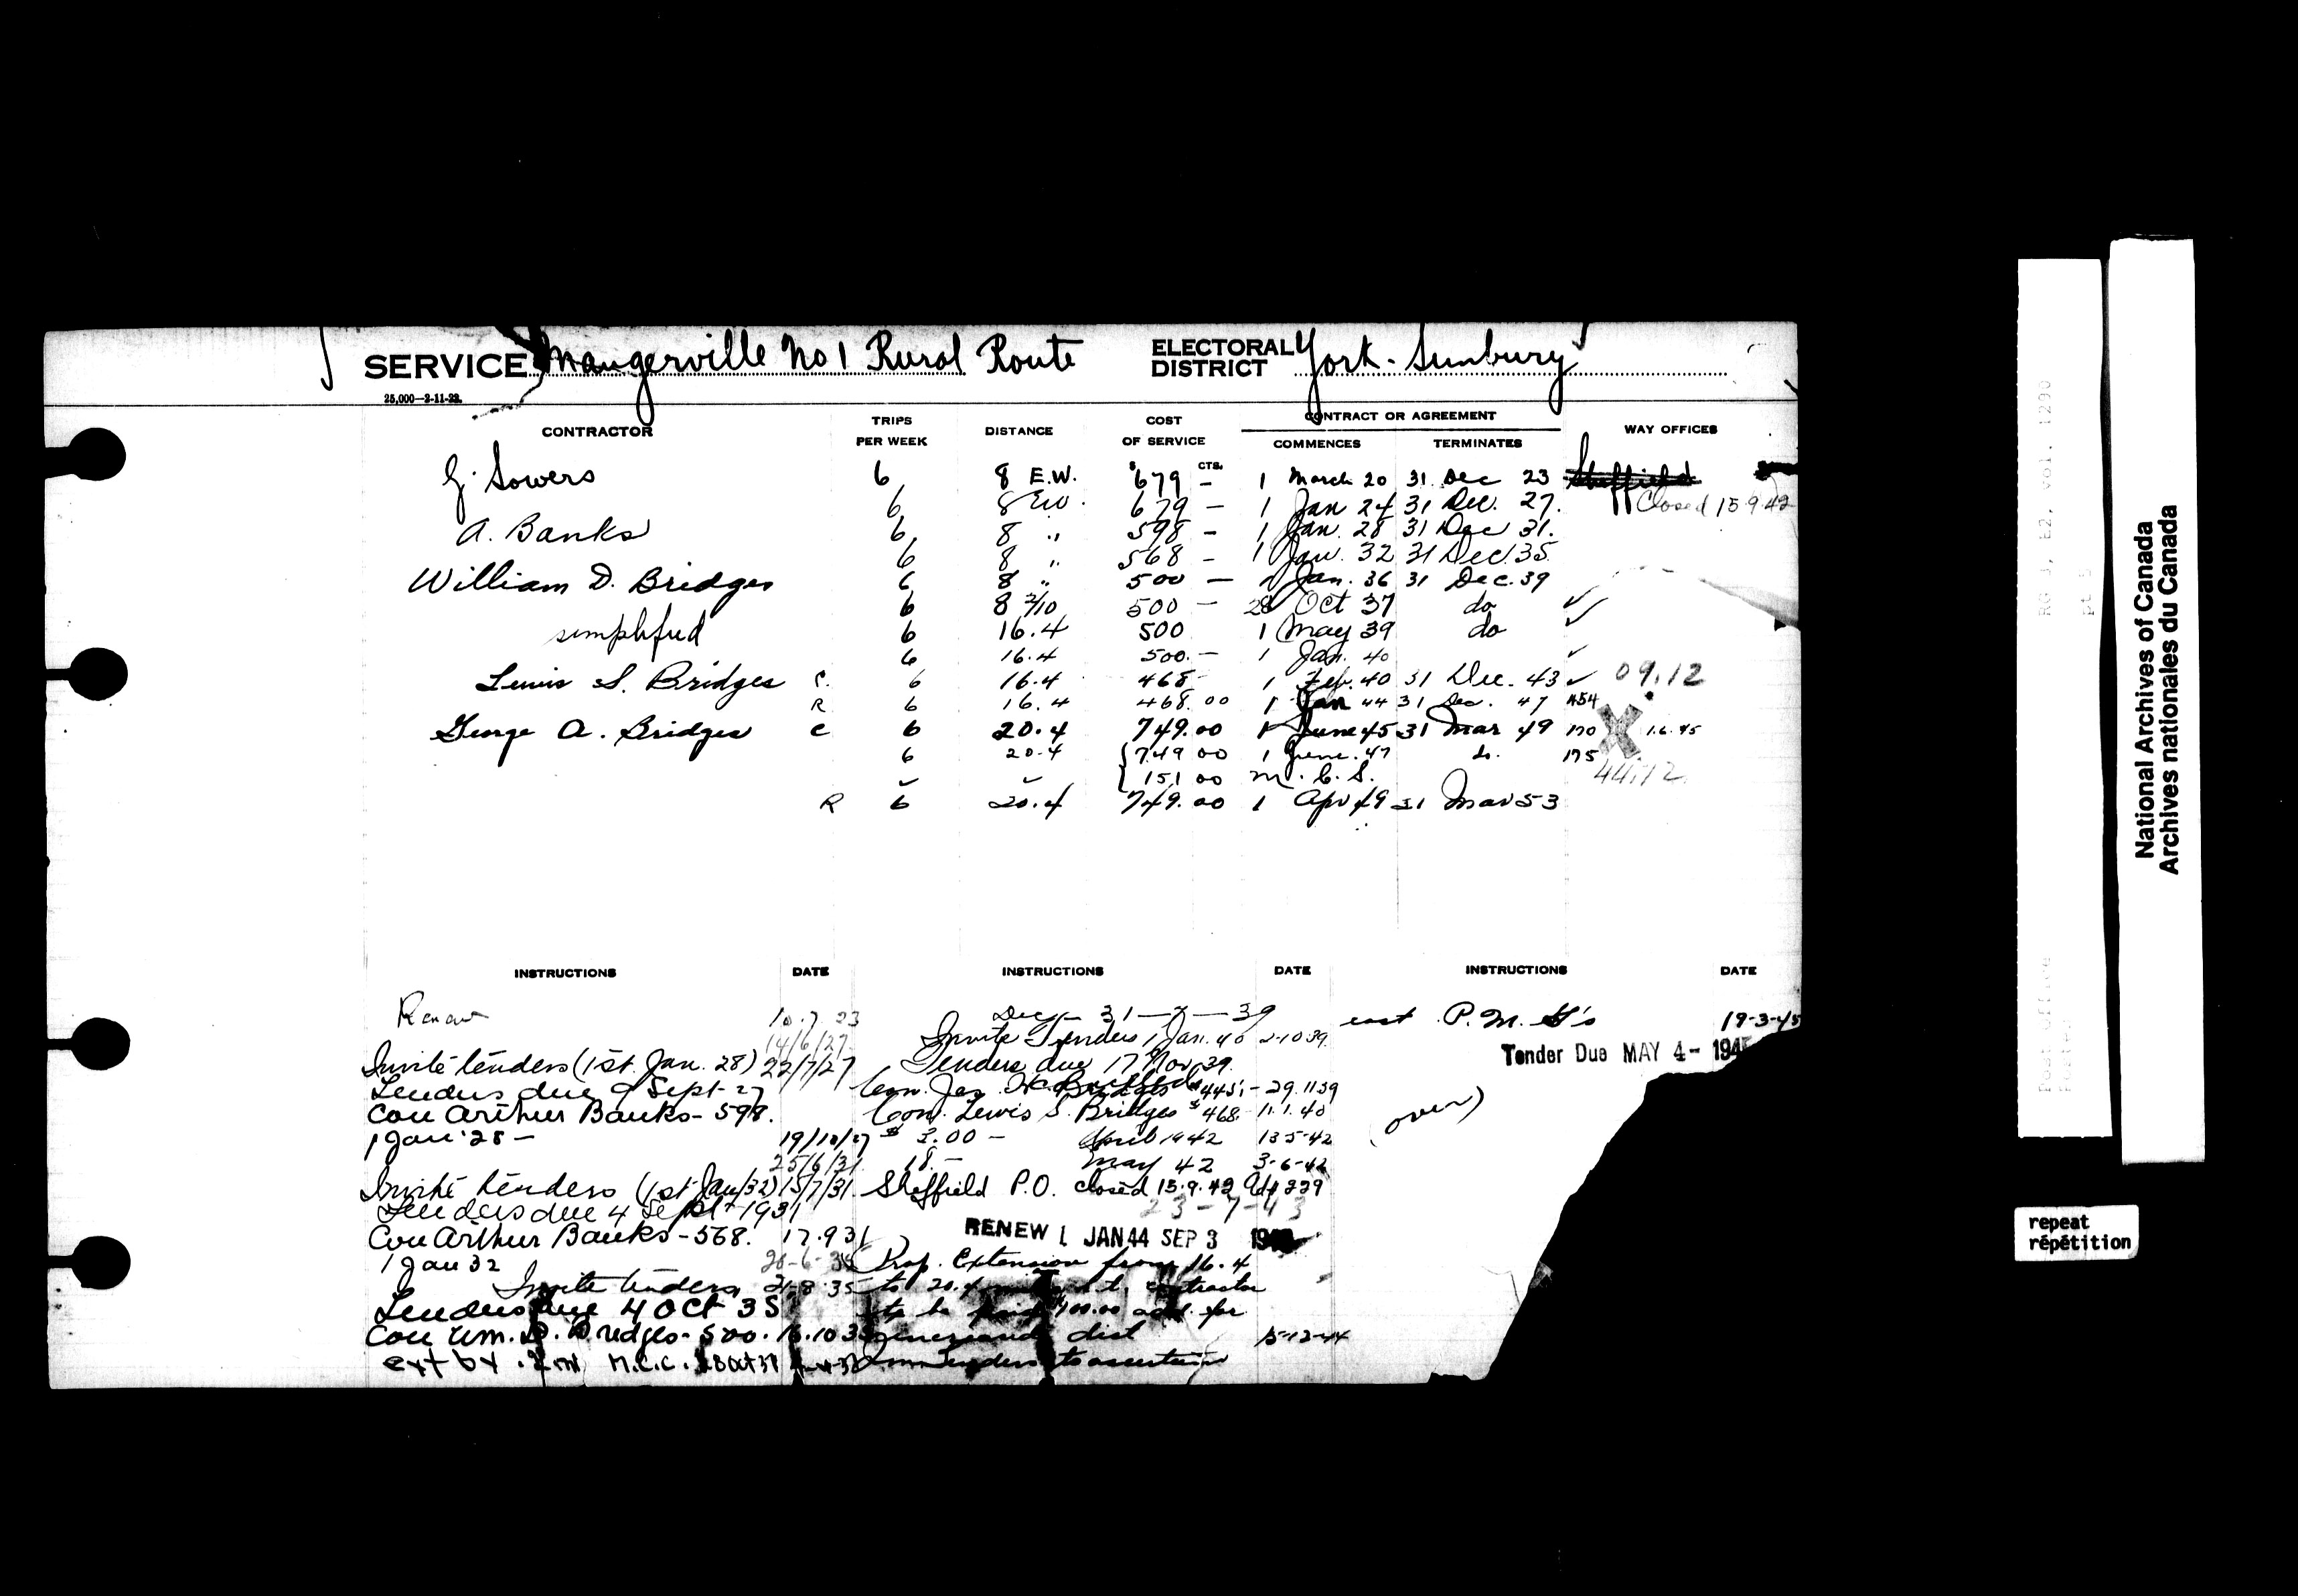 SERVICE Maugerville No 1 Rural Route ELECTORAL DISTRICT York-Sunbury
25,000—2-11-22.
CONTRACTOR TRIPS PER WEEK DISTANCE COST OF SERVICE CONTRACT OR AGREEMENT COMMENCES TERMINATES WAY OFFICES
G. Sowers 6 8 E.W. $679 CTS. — 1 March 20 31 Dec 23 Sheffield
6 8 E.W. 679 — 1 Jan 24 31 Dec. 27. Closed 15.9.42
A. Banks 6 8 " 598 — 1 Jan. 28 31 Dec 31.
6 8 " 568 — 1 Jan. 32 31 Dec. 35.
William D. Bridges 6 8 " 500 — 1 Jan. 36 31 Dec. 39
6 8 2/10 500 — 28 Oct 37 do ✓
simplified 6 16.4 500 1 May 39 do ✓
6 16.4 500.— 1 Jan. 40 ✓
Lewis S. Bridges C. 6 16.4 468- 1 Feb. 40 31 Dec. 43 ✓ 09.12
R 6 16.4 468.00 1 Jan 44 31 Dec. 47 454
George A. Bridges C 6 20.4 749.00 1 June 45 31 Mar 49 170 X 1.6.45
6 20.4 {749 00 1 June. 47 do. 175
{151 00 M.C.S. 44.12
R 6 20.4 749.00 1 Apr 49 31 Mar 53
INSTRUCTIONS DATE INSTRUCTIONS DATE INSTRUCTIONS DATE
Renew 10.7.23
14/6/27
Invite tenders (1st. Jan. 28) 22/7/27
Tenders due 9 Sept 27
Con Arthur Banks- 598.
1 Jan '28 — 19/10/27
25/6/31
Invite tenders (1st Jan/32) 15/7/31.
Tenders due 4 Sept 1931
Con Arthur Banks- 568. 17.9.31
1 Jan 32 20-6-35
Invite tenders, 21-8-35
Tenders due 4 Oct 35
Con Wm. D. Bridges- 500. 16.10.35
ext by .2 m M.C.C. 28 Oct 37
31—7—39
Invite Tenders 1 Jan. 40 2-10 39.
Tenders due 17 Nov 39.
Con. Jas. $445.- 29.11 39
Con. Lewis S. Bridges $468. 11.1.40
$ 3.00 — April 1942 13 5-42
18.— May 42 3-6-42
Sheffield P.O. closed 15.9.42 229
23-7-43
RENEW 1 JAN 44 SEP 3
Prop. Extension from 16.4
to 20.4 contractor
to be paid 100.00 add. for
dist 5-12-44
Tenders to ascertain
cost P.M. G's 19-3-45
Tender Due MAY 4- 1945
(over)
National Archives of Canada
Archives nationales du Canada
RG 3, E2, vol. 1290
repeat
répétition